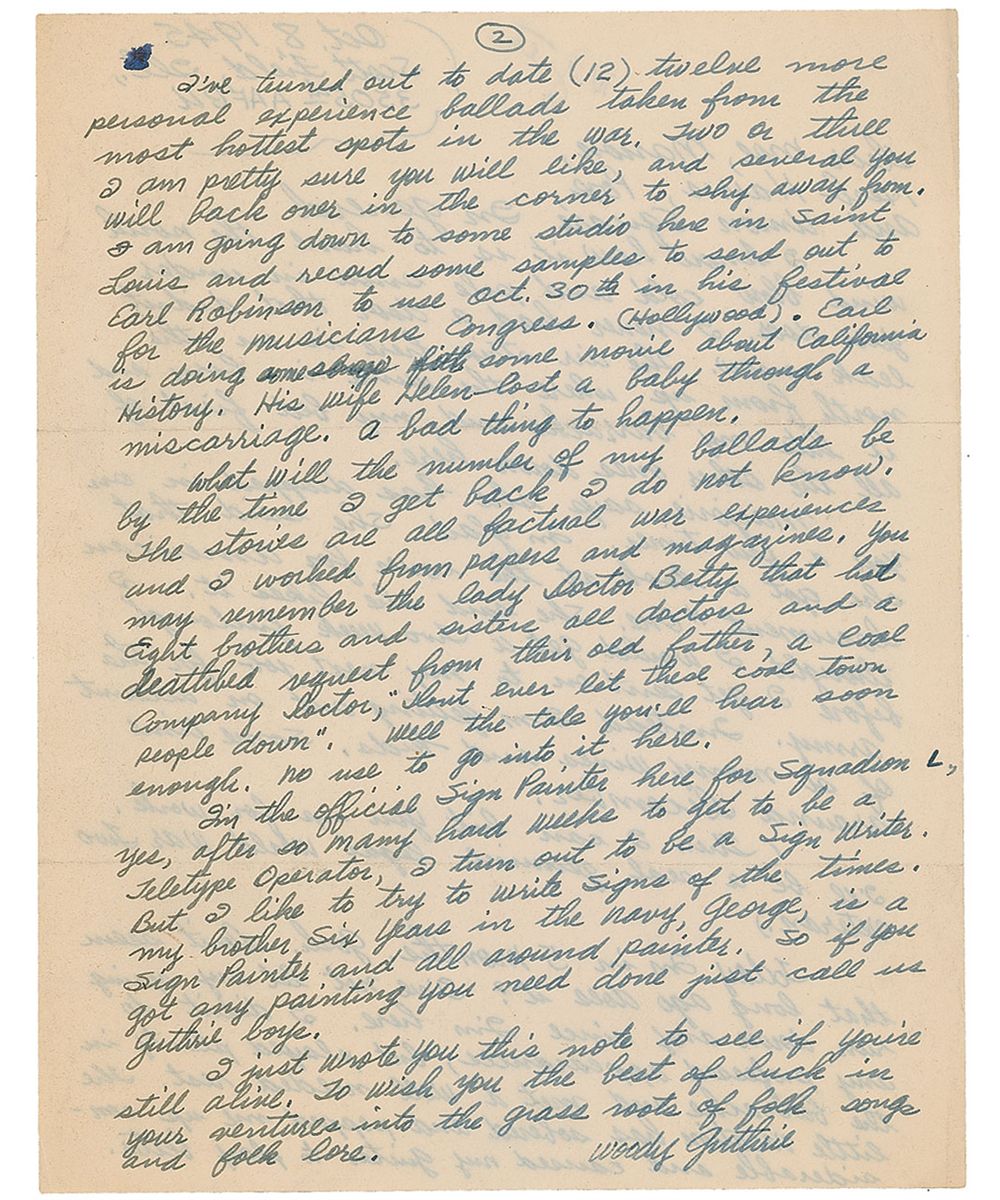 2
I've turned out to date (12) twelve more
personal experience ballads taken from the
most hottest spots in the war. Two or three
I am pretty sure you will like, and several you
will back over in the corner to shy away from.
I am going down to some studio here in Saint
Louis and record some samples to send out to
Earl Robinson to use Oct. 30th in his festival
for the musicians Congress. (Hollywood). Earl
is doing some movie about California
History. His wife Helen lost a baby through a
miscarriage. A bad thing to happen.
What will the number of my ballads be
by the time I get back I do not know.
The stories are all factual war experiences
and I worked from papers and magazines. You
may remember the lady Doctor Betty that had
Eight brothers and sisters all doctors and a
deathbed request from their old father, a Coal
Company Doctor, "Dont ever let these coal town
people down". Well the tale you'll hear soon
enough. No use to go into it here.
I'm the official Sign Painter here for Squadron L,
yes, after so many hard weeks to get to be a
Teletype Operator, I turn out to be a Sign Writer.
But I like to try to write Signs of the times.
my brother, Six Years in the Navy, George, is a
Sign Painter and all around painter. So if you
got any painting you need done just call us
Guthrie boys.
I just wrote you this note to see if you're
still alive. To wish you the best of luck in
your ventures into the grass roots of folk songs
and folk lore.
Woody Guthrie